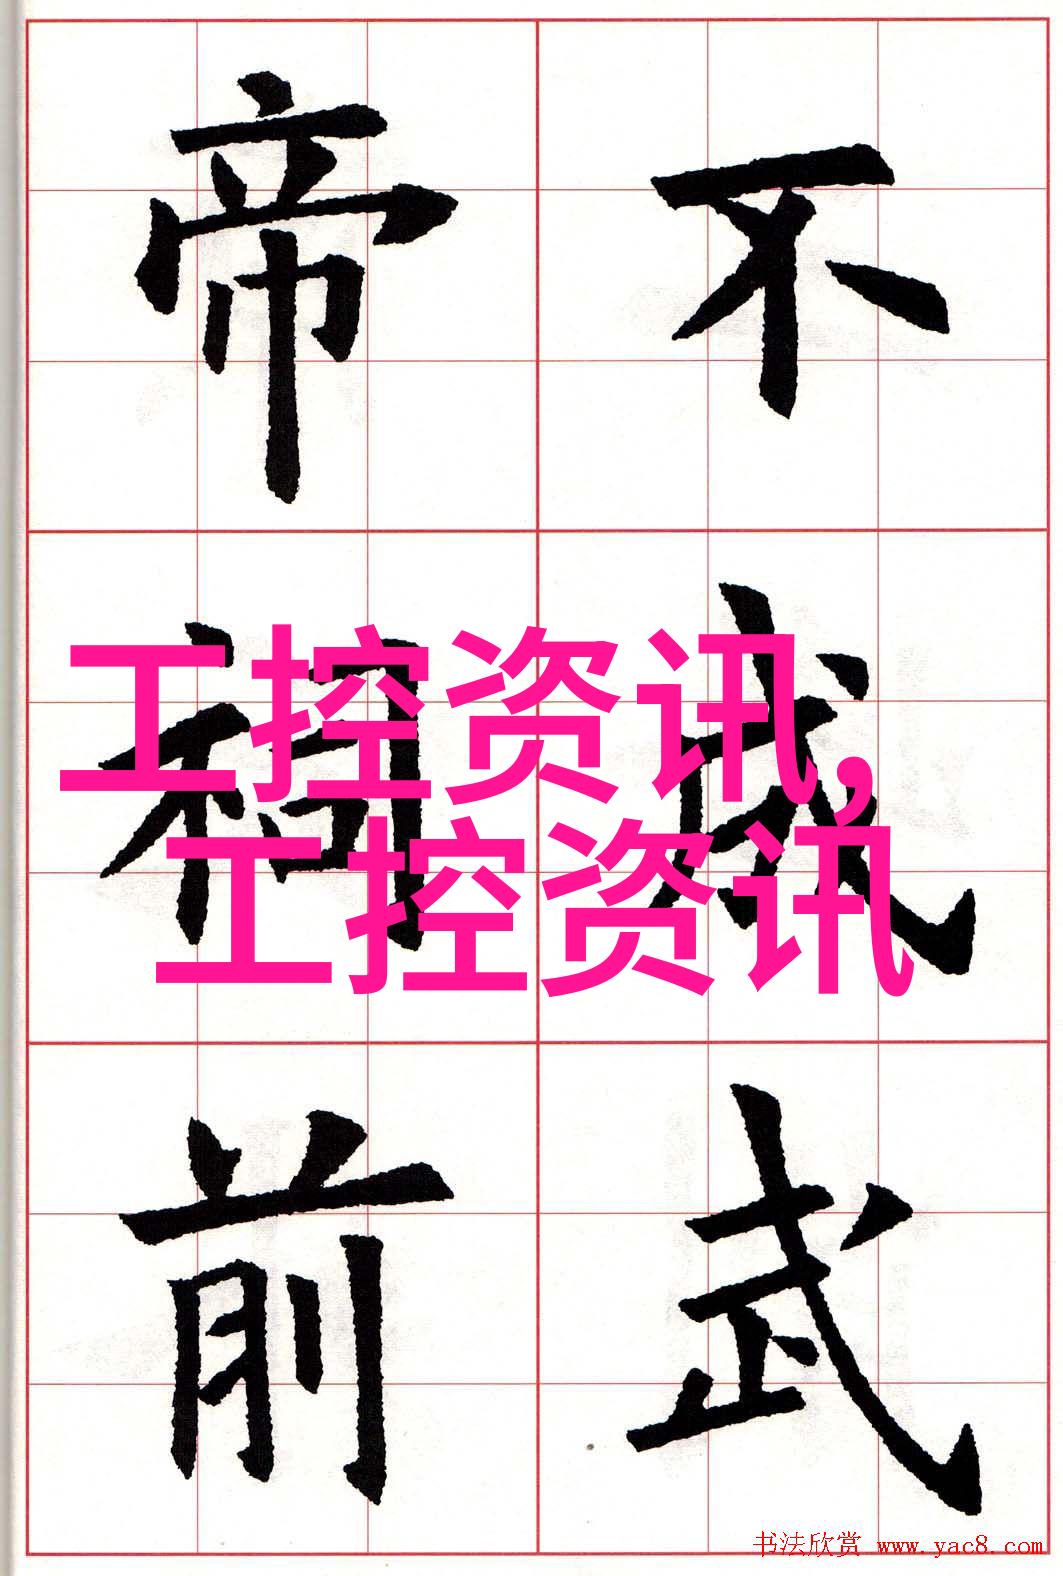 不武
帝祠前
工控资讯,
工控资讯
书法欣赏 www.yac8.com